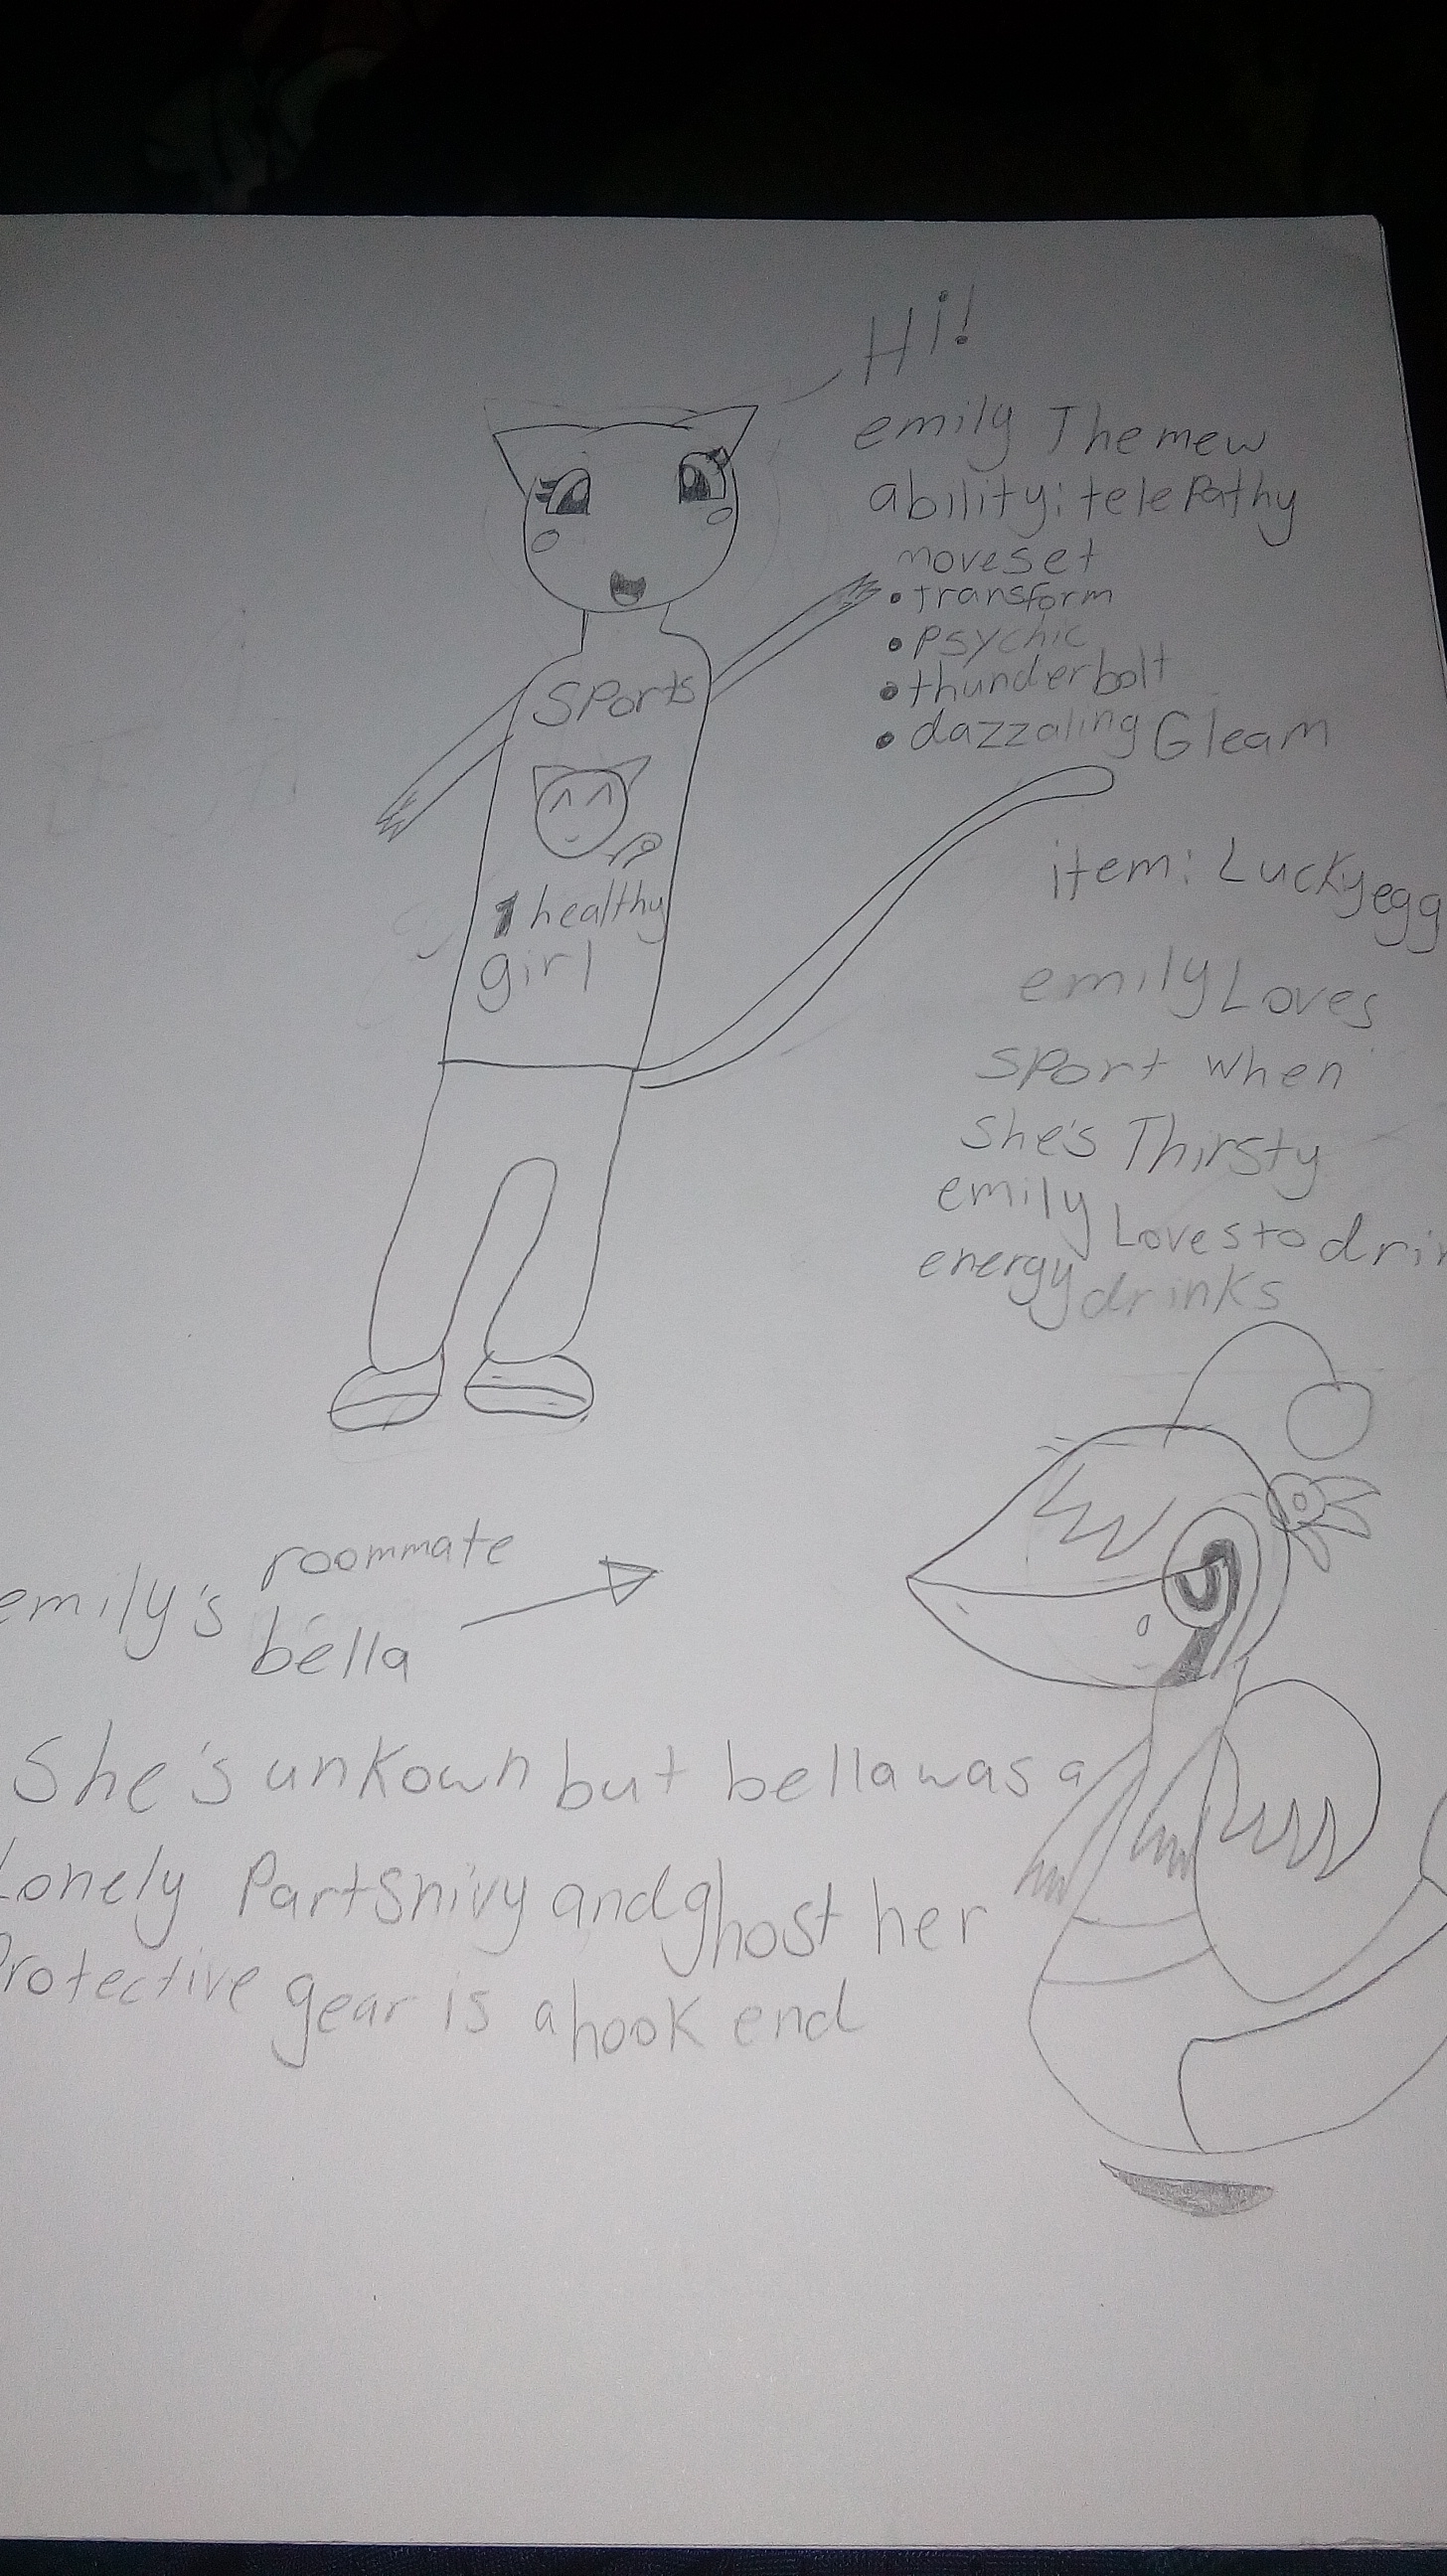 Hi!
emily The mew
ability: telepathy
moveset
• transform
• psychic
• thunderbolt
• dazzaling Gleam
Sports
1 healthy
girl
item: Lucky egg
emily Loves
sport when
she's Thirsty
emily Loves to drin
energy drinks
emily's roommate
bella
She's unkown but bella was a
Lonely Part Snivy and ghost her
Protective gear is a hook end